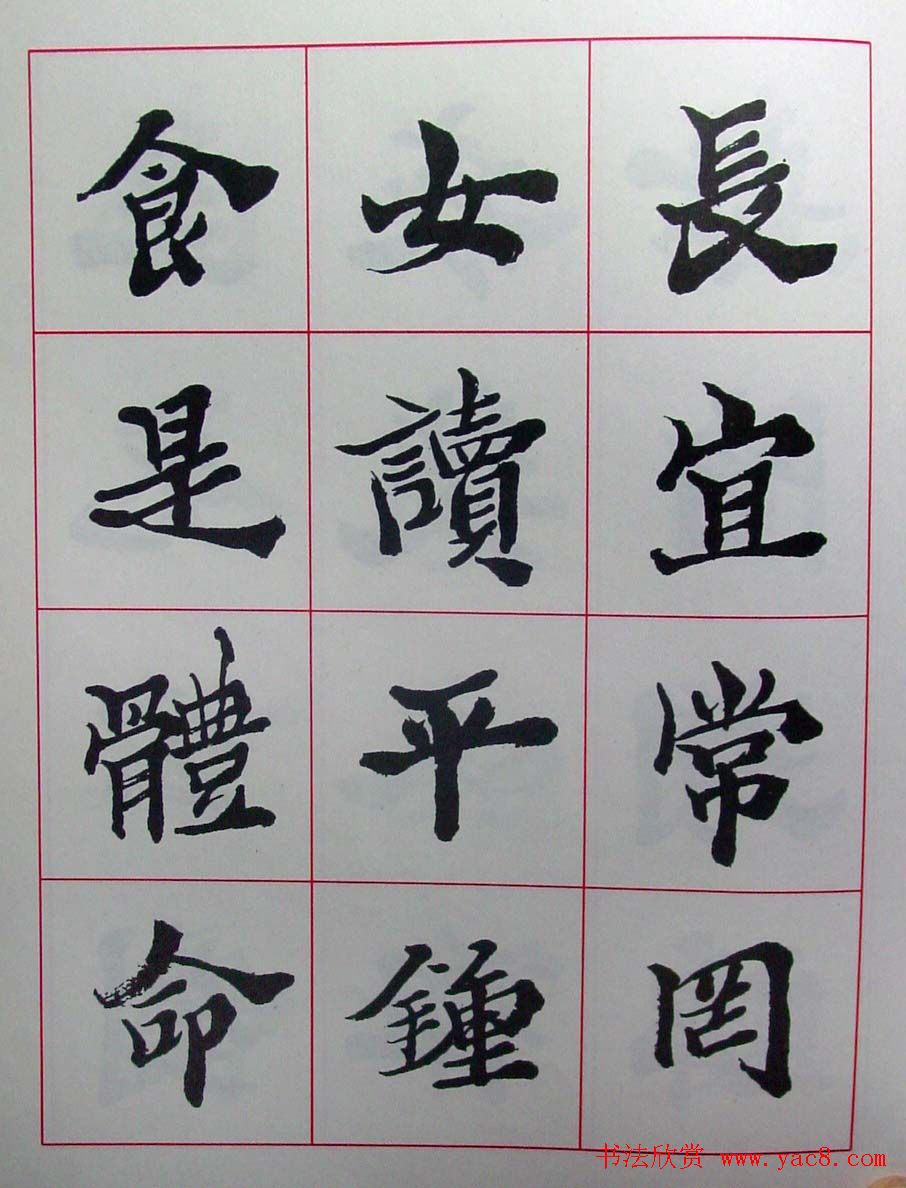 長宜常罔
女讀平鍾
食是體命
书法欣赏 www.yac8.com